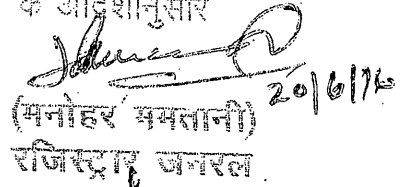 के आदेशानुसार
20/6/16
(मनोहर ममतानी)
रजिस्ट्रार जनरल